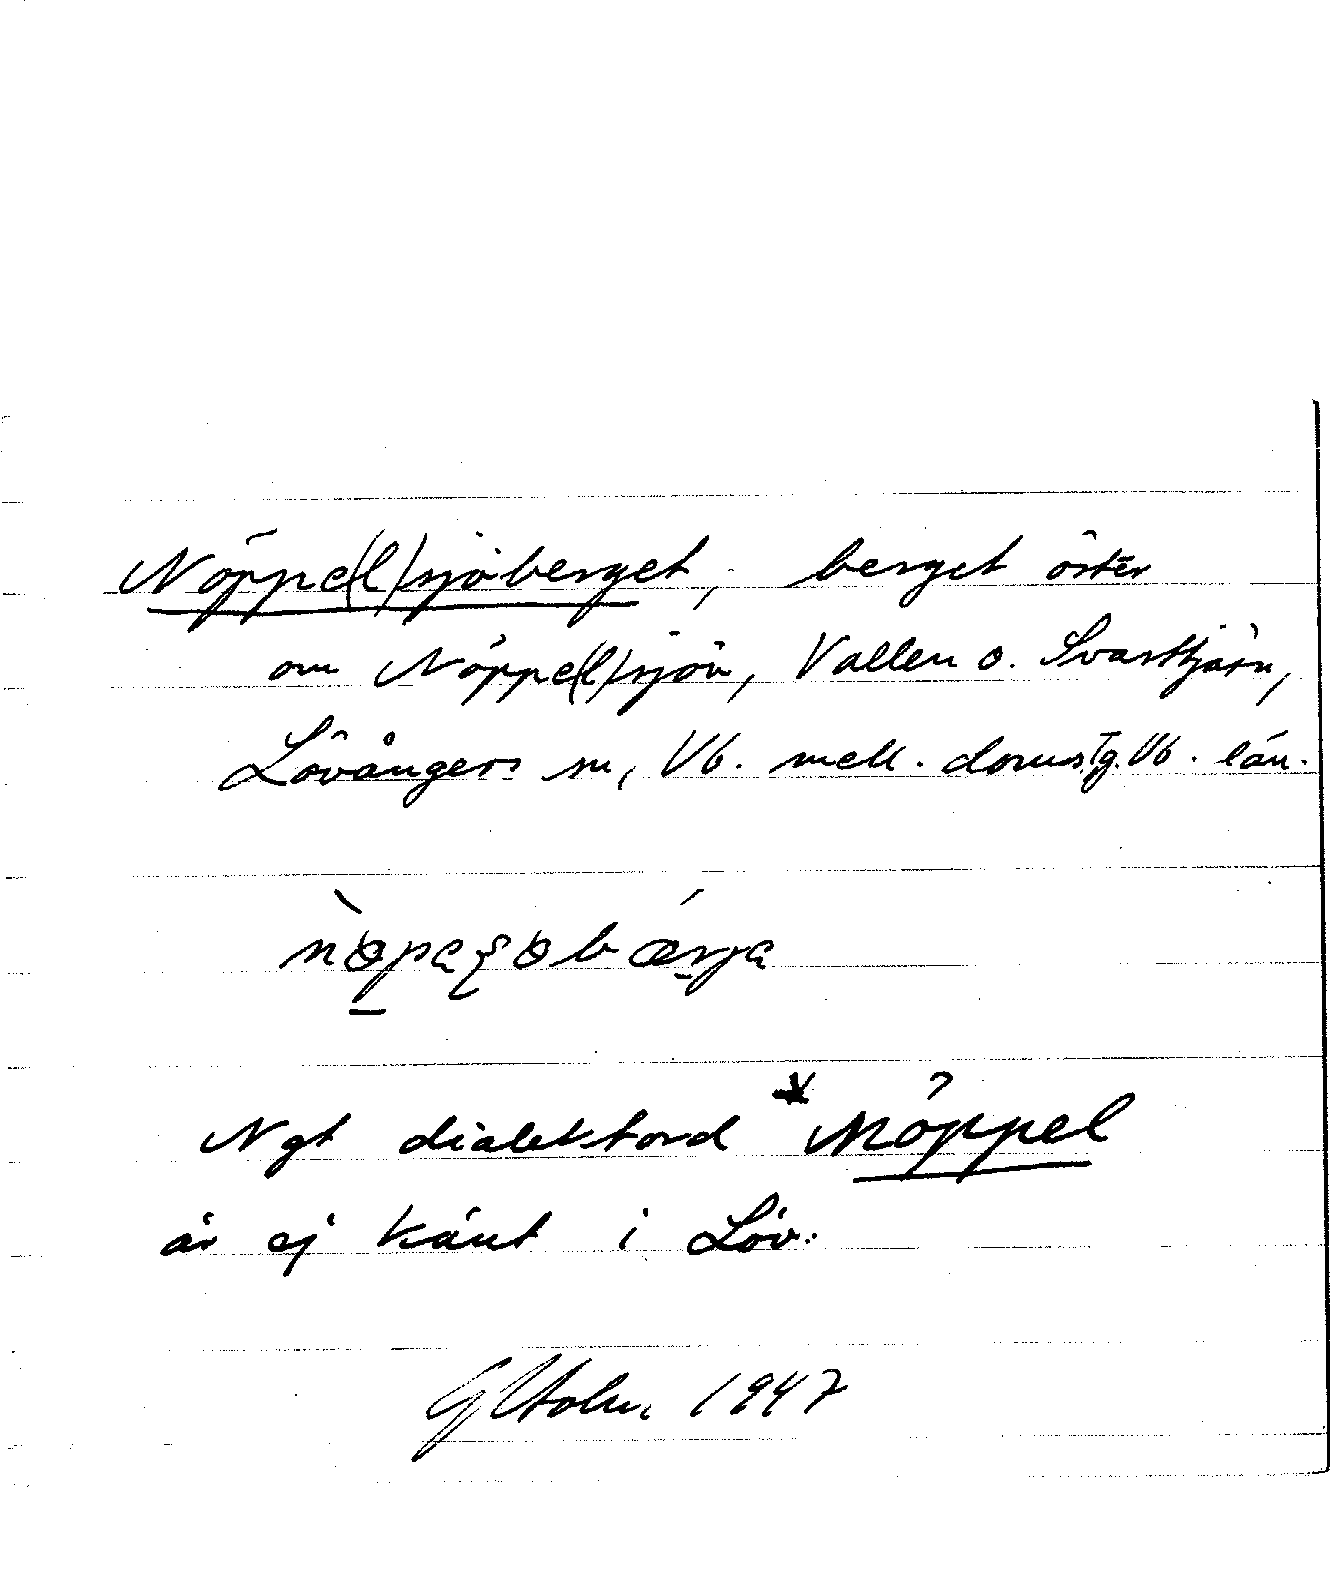 Nöppe(l)sjöberget, berget öster
om Nöppe(l)sjön, Vallen o. Svarttjärn,
Lövångers sn, Vb. mell. doms.Tg. Vb. län.
Ngt dialektord *nöppel
är ej känt i Löv.
1947